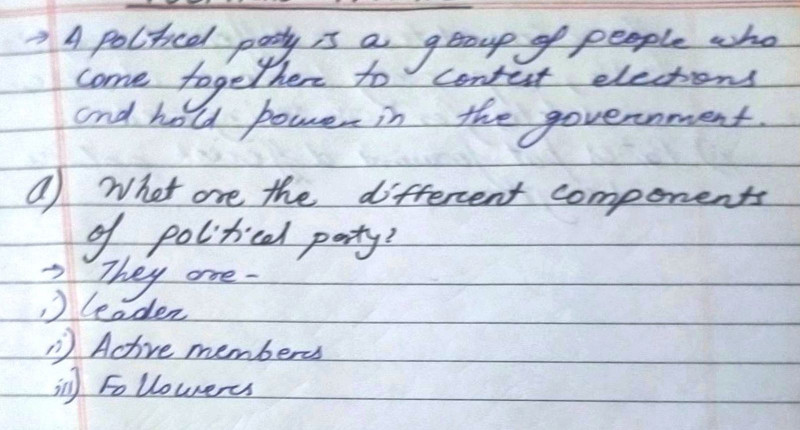 → A political party is a group of people who
come together to contest elections
and hold power in the government.
Q) What are the different components
of political party?
→ They are -
i) Leader
ii) Active members
iii) Followers